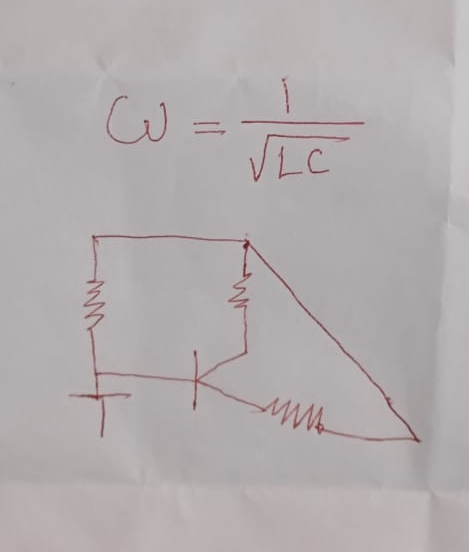 ω = 1/√LC